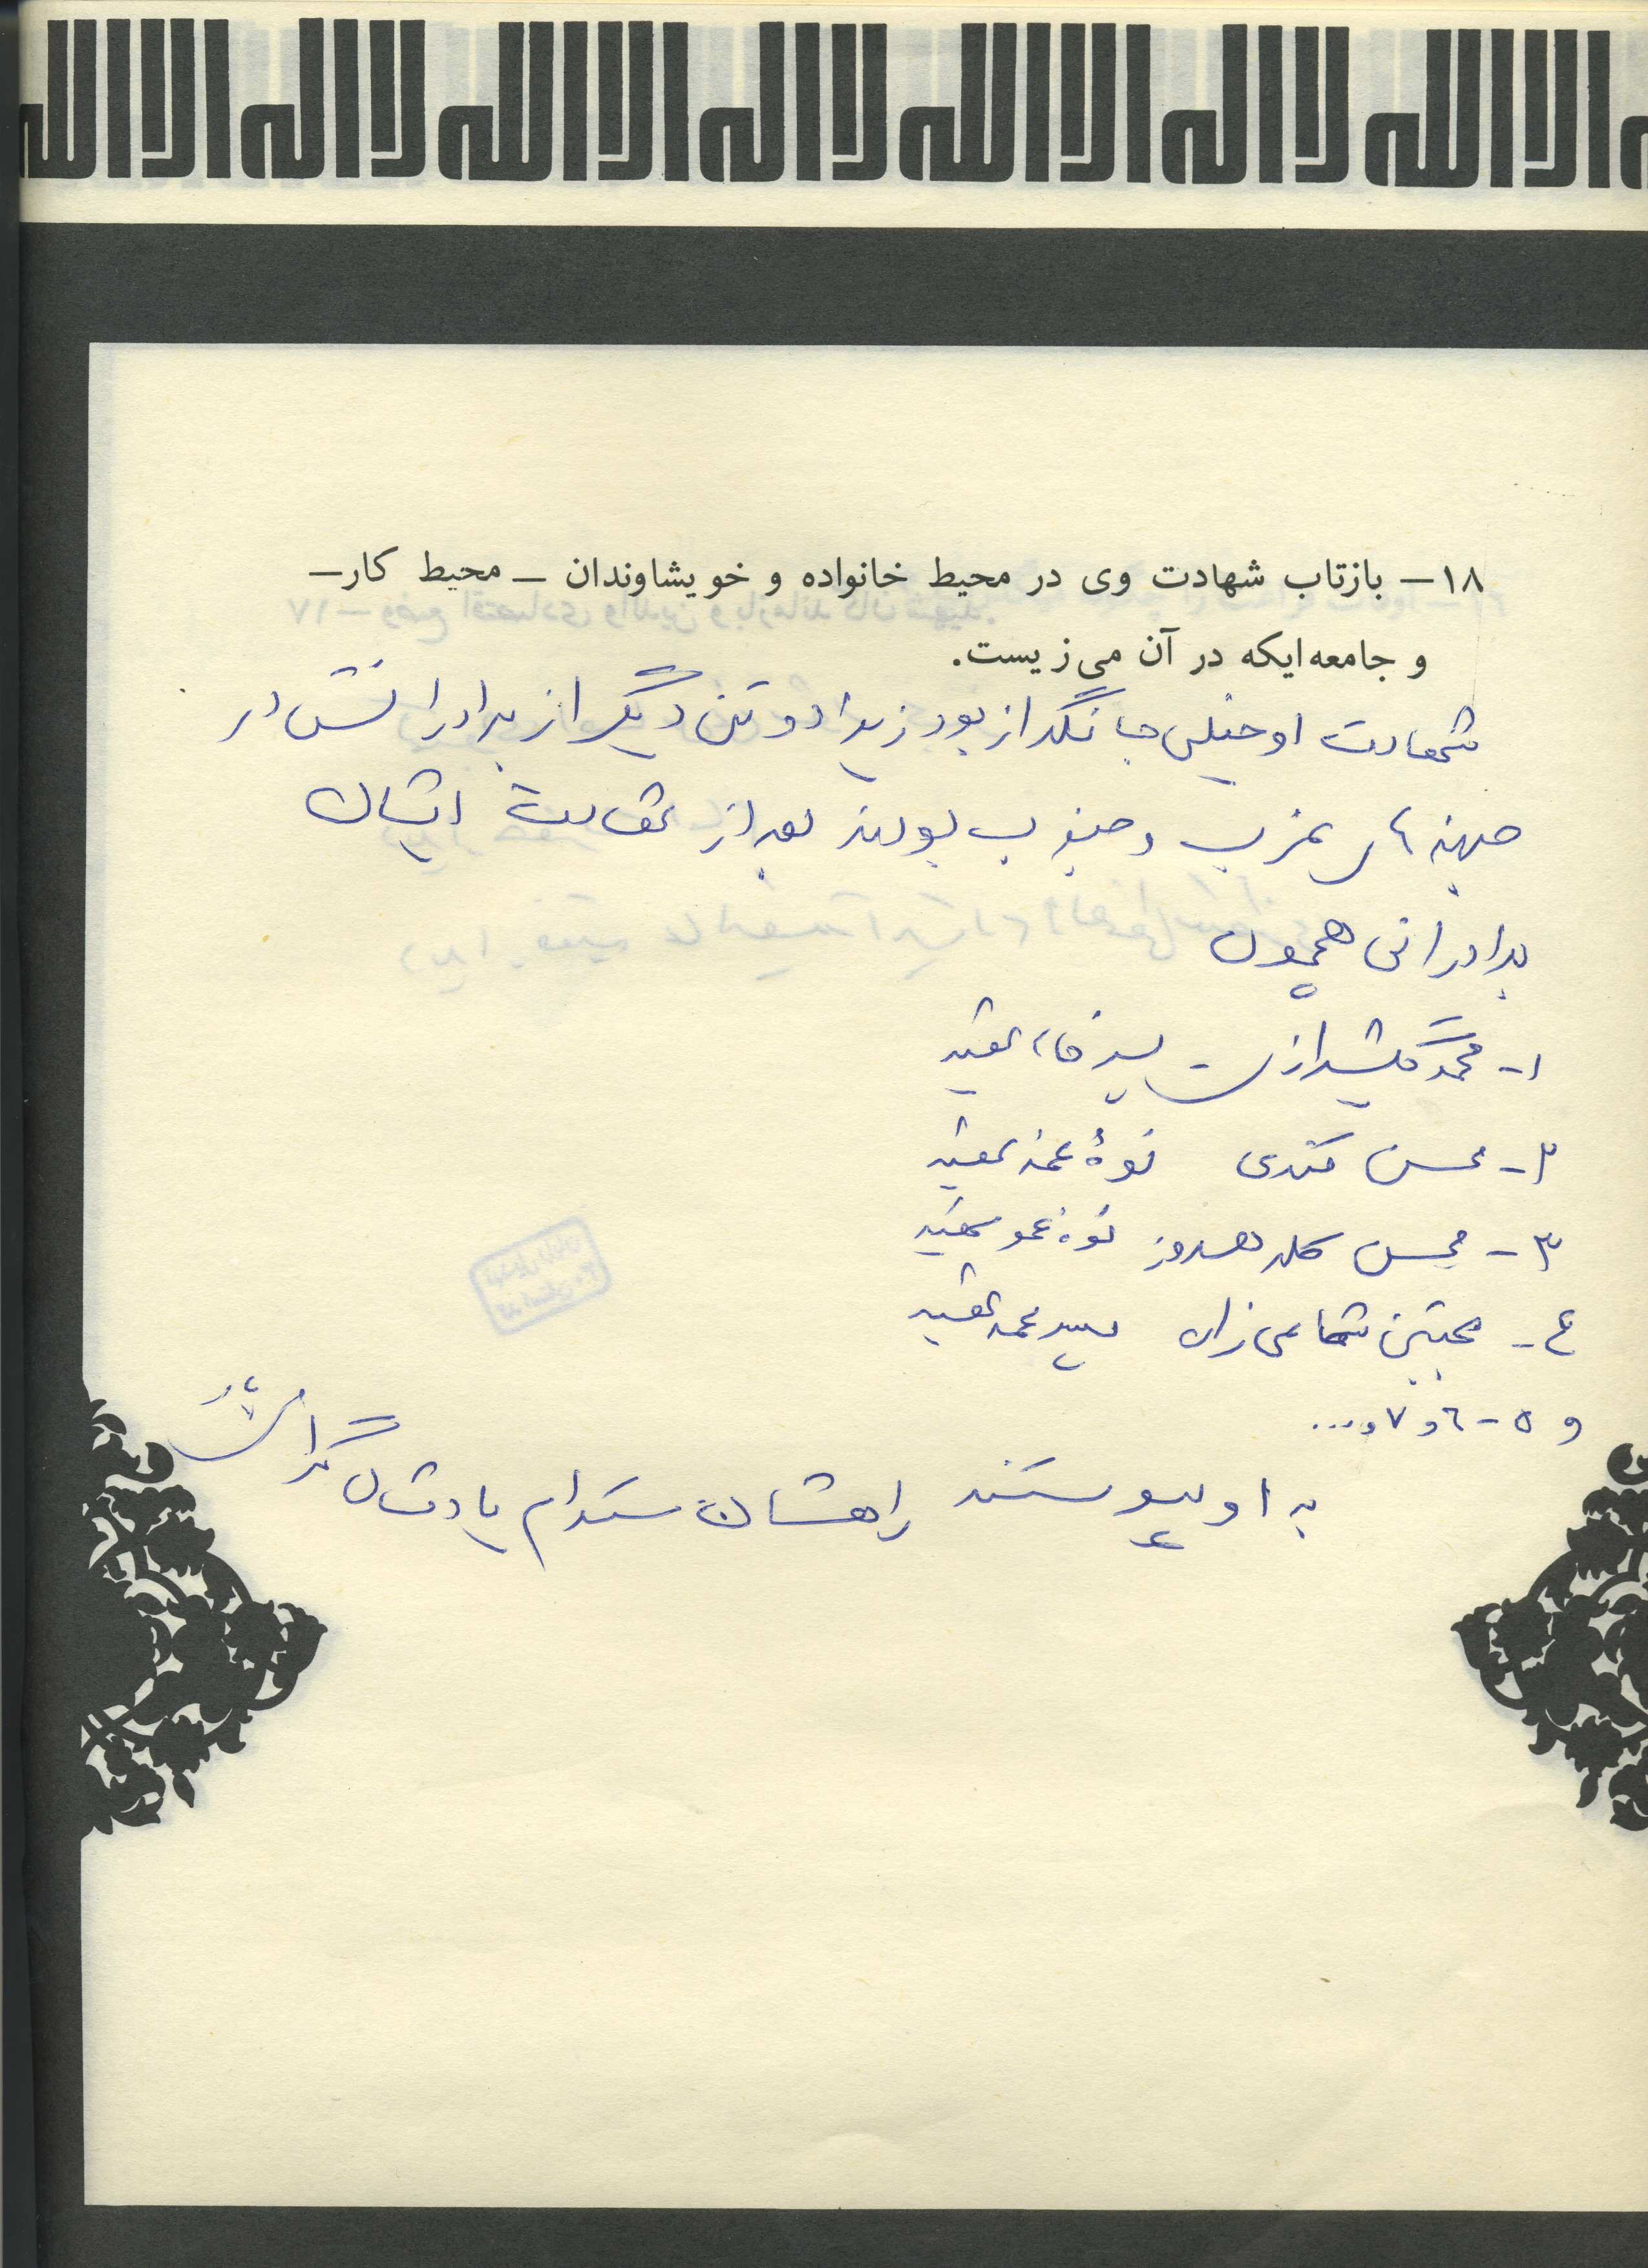 لا اله الا الله لا اله الا الله لا اله الا الله
۱۸ – بازتاب شهادت وی در محیط خانواده و خویشاوندان – محیط کار –
و جامعه‌ایکه در آن می‌زیست.
شهادت او خیلی جانگداز بود زیرا دو تن دیگر از برادرانش در
جبهه های غرب و جنوب بودند بعد از شهادت ایشان
برادرانی همچون
۱- محمد شیرازی پسر شهید
۲- محسن کندی نوهٔ عمه شهید
۳- محسن نوه عمو شهید
۴- مجتبی پسر عمه شهید
و ۵-۶ و ۷ و ...
به او پیوستند راهشان مستدام یادشان گرامی